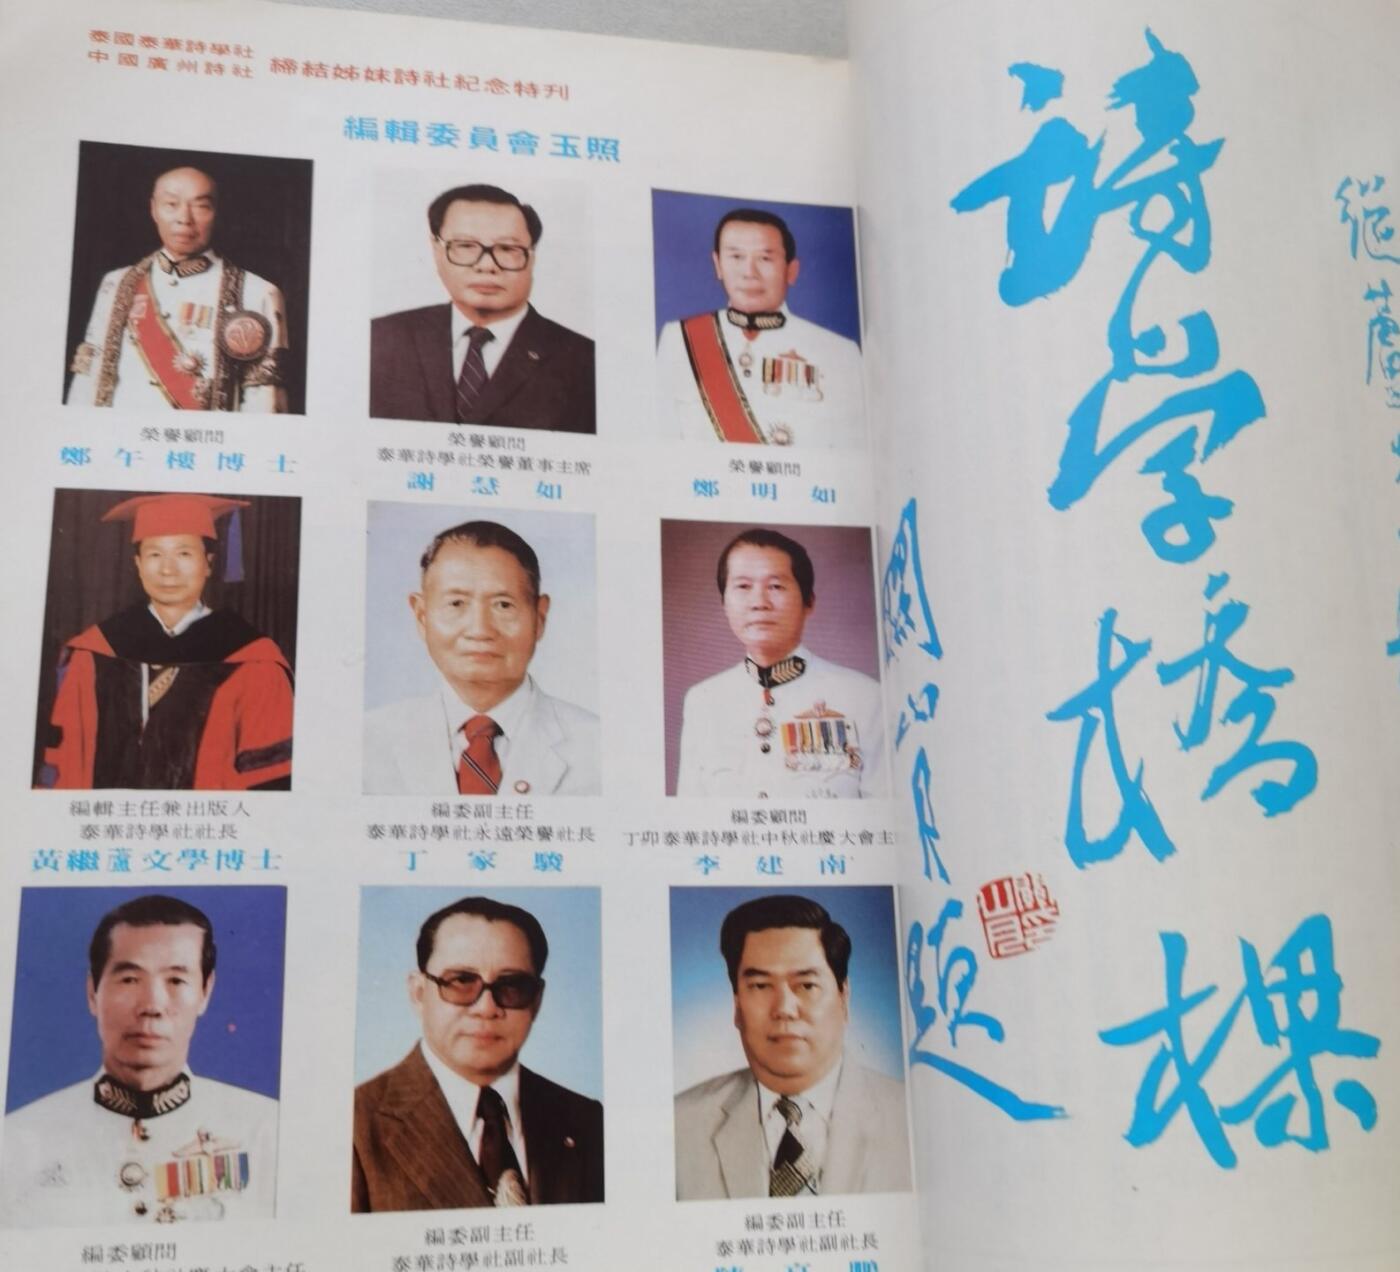 泰國泰華詩學社
中國廣州詩社
締結姊妹詩社紀念特刊
編輯委員會玉照
榮譽顧問
鄭午樓博士
榮譽顧問
泰華詩學社榮譽董事主席
謝慧如
榮譽顧問
鄭明如
編輯主任兼出版人
泰華詩學社社長
黃繼蘆文學博士
編委副主任
泰華詩學社永遠榮譽社長
丁家駿
編委顧問
丁卯泰華詩學社中秋社慶大會主
李建南
編委顧問
編委副主任
泰華詩學社副社長
編委副主任
泰華詩學社副社長
继蘆
詩学橋樑
關山月題